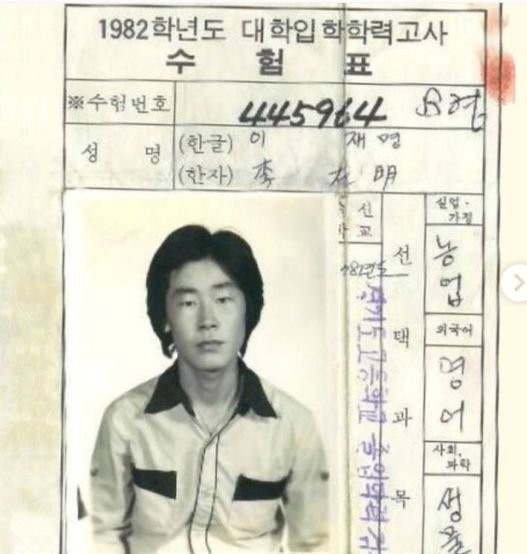 1982학년도 대학입학학력고사
수 험 표
※수험번호 445964 B형
성 명 (한글) 이 재 명
(한자) 李 在 明
선 택 과 목
실업·가정
농업
외국어
영어
사회, 과학
생물